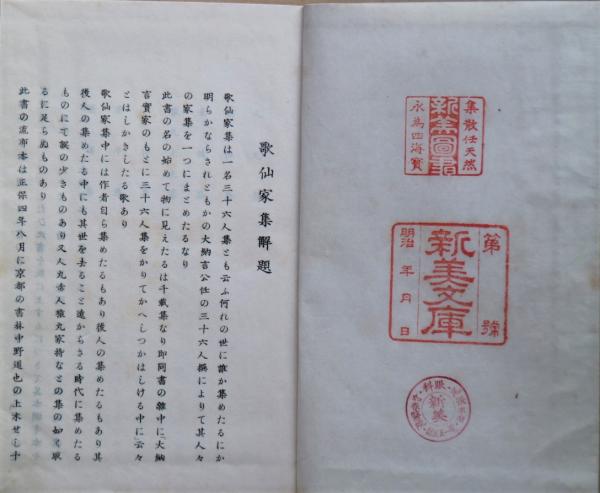 集散任天然
新美圖書
永為四海寶
第 號
新美文庫
明治 年 月 日
眼科
新美
歌仙家集解題
歌仙家集は一名三十六人集とも云ふ何れの世に誰か集めたるにか
明らかならされともかの大納言公任の三十六人撰によりて其人々
の家集を一つにまとめたるなり
此書の名の始めて物に見えたるは千載集なり即同書の雜中に「大納
言實家のもとに三十六人集をかりてかへしつかはしける中に」云々
とはしかきしたる歌あり
歌仙家集中には作者自ら集めたるもあり後人の集めたるもあり其
後人の集めたる中にも其世を去ること遠からさる時代に集めたる
ものにて誤の少きものあり又人丸赤人猿丸家持などの集の如く取
るに足らぬものあり
此書の流布本は正保四年八月に京都の書林中野道也の上木せし十